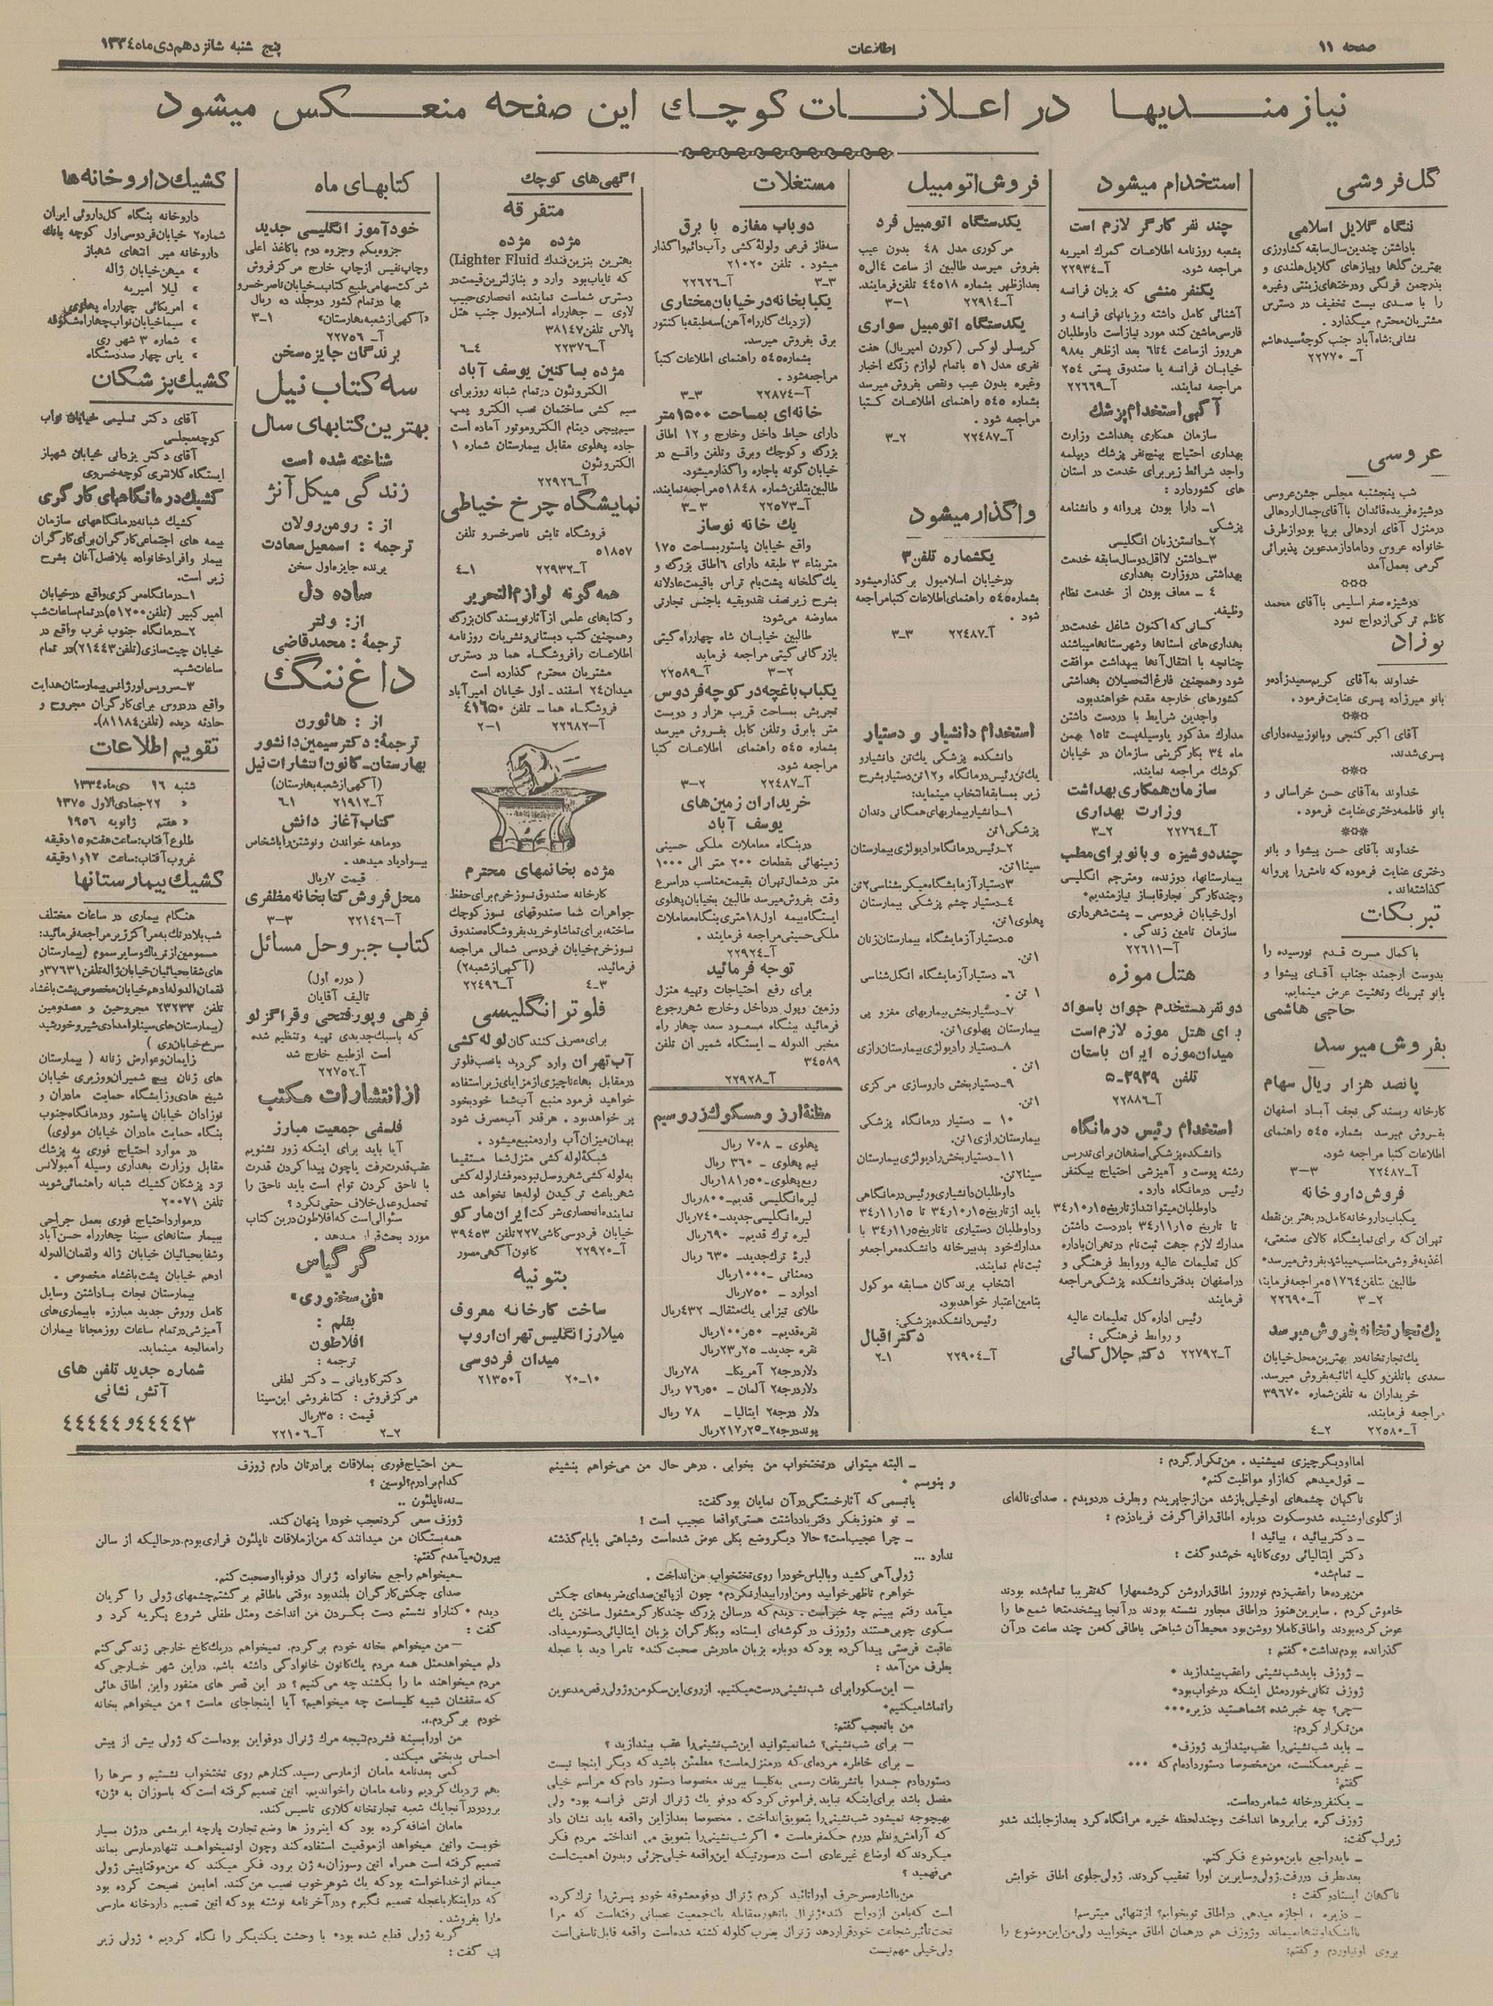 صفحه ۱۱
اطلاعات
پنج شنبه شانزدهم دی ماه ۱۳۳٤
نیازمندیها در اعلانات کوچک این صفحه منعکس میشود
گل فروشی
بنگاه گلایل اسلامی
باداشتن چندین سال سابقه کشاورزی
بهترین گلها وپیازهای گلایل هلندی و
بذرچمن فرنگی ودرختهای زینتی وغیره
را با صدی بیست تخفیف در دسترس
مشتریان محترم میگذارد .
نشانی: شاه آباد جنب کوچه سیدهاشم
آ- ۲۲۷۷۰
عروسی
شب پنجشنبه مجلس جشن عروسی
دوشیزه فریده قائدان باآقای جمال اردهالی
درمنزل آقای اردهالی برپا بود وازطرف
خانواده عروس وداماد ازمدعوین پذیرائی
گرمی بعمل آمد
دوشیزه صغر اسلیمی باآقای محمد
کاظم ترکی ازدواج نمود
نوزاد
خداوند به آقای کریم سعیدزاده و
بانو میرزاده پسری عنایت فرمود .
آقای اکبر کنجی وبانو زبیده دارای
پسری شدند.
خداوند به آقای حسن خراسانی و
بانو فاطمه دختری عنایت فرمود .
خداوند بآقای حسن پیشوا و بانو
دختری عنایت فرموده که نامش را پروانه
گذاشته اند .
تبریکات
باکمال مسرت قدم نورسیده را
بدوست ارجمند جناب آقای پیشوا و
بانو تبریک وتهنیت عرض مینمایم.
حاجی هاشمی
بفروش میرسد
پانصد هزار ریال سهام
کارخانه ریسندگی نجف آباد اصفهان
بفروش میرسد بشماره ٥٤٥ راهنمای
اطلاعات کتبا مراجعه شود.
آ-۲۲٤۸۷ ۳-۳
فروش داروخانه
یکباب داروخانه کامل در بهترین نقطه
تهران که برای نمایشگاه کالای صنعتی،
اغذیه فروشی مناسب میباشد بفروش میرسد
طالبین بتلفن ٥۱۷٦٤ مراجعه فرمایند
۲-۳ آ-۲۲٦۹۰
یک تجارتخانه بفروش میرسد
یک تجارتخانه در بهترین محل خیابان
سعدی باتلفن و کلیه اثاثیه بفروش میرسد.
خریداران به تلفن شماره ۳۹٦۷۰
مراجعه فرمایند.
آ-۲۲٥۸۰ ۲-٤
استخدام میشود
چند نفر کارگر لازم است
بشعبه روزنامه اطلاعات گمرک امیریه
مراجعه شود. آ-۲۲۹۳٤
یکنفر منشی که بزبان فرانسه
آشنائی کامل داشته وبزبانهای فرانسه و
فارسی ماشین کند مورد نیازاست داوطلبان
هرروز ازساعت ٤تا٦ بعد ازظهر به۹۸
خیابان فرانسه یا صندوق پستی ۲٥٤
مراجعه نمایند. آ-۲۲٦٦۹
آگهی استخدام پزشک
سازمان همکاری بهداشت وزارت
بهداری احتیاج بپنج نفر پزشک دیپلمه
واجد شرائط زیربرای خدمت در استان
های کشوردارد :
۱- دارا بودن پروانه و دانشنامه
پزشکی
۲-دانستن زبان انگلیسی
۳-داشتن لااقل دوسال سابقه خدمت
بهداشتی دروزارت بهداری
٤ - معاف بودن از خدمت نظام
وظیفه.
کسانی که اکنون شاغل خدمت در
بهداری های استانها وشهرستانها میباشند
چنانچه با انتقال آنها ببهداشت موافقت
شود وهمچنین فارغ التحصیلان بهداشتی
کشورهای خارجه مقدم خواهندبود.
واجدین شرایط با دردست داشتن
مدارک مذکور یاوسیله پست تا۱٥ بهمن
ماه ۳٤ بکارگزینی سازمان در خیابان
کوشک مراجعه نمایند.
سازمان همکاری بهداشت
وزارت بهداری
آ-۲۲۷٦٤ ۲-۳
چند دوشیزه و بانو برای مطب
بیمارستانها، دوزنده، ومترجم انگلیسی
وچند کارگر نجار قاب ساز نیازمندیم
اول خیابان فردوسی - پشت شهرداری
سازمان تامین زندگی .
آ-۲۲٦۱۱
هتل موزه
دو نفر مستخدم جوان باسواد
برای هتل موزه لازم است
میدان موزه ایران باستان
تلفن ۲۹۲۹-٥
آ-۲۲۸۸٦
استخدام رئیس درمانگاه
دانشکده پزشکی اصفهان برای تدریس
رشته پوست و آمیزشی احتیاج بیکنفر
رئیس درمانگاه دارد .
داوطلبان میتوانند ازتاریخ ۱٥ر۱۰ر۳٤
تا تاریخ ۱٥ر۱۱ر۳٤ بادردست داشتن
مدارک لازم جهت ثبت نام در تهران باداره
کل تعلیمات عالیه وروابط فرهنگی و
دراصفهان بدفتردانشکده پزشکی مراجعه
فرمایند
رئیس اداره کل تعلیمات عالیه
و روابط فرهنگی :
آ-۲۲۷۹۲ دکتر جلال کسائی
فروش اتومبیل
یکدستگاه اتومبیل فرد
مرکوری مدل ٤۸ بدون عیب
بفروش میرسد طالبین از ساعت ٤الی٥
بعدازظهر بشماره ٤٤٥۱۸ تلفن فرمایند.
آ-۲۲۹۱٤ ۱-۳
یکدستگاه اتومبیل سواری
کریسلی لوکس (کورن امپریال) هفت
نفری مدل ٥۱ باتمام لوازم زنگ اخبار
وغیره بدون عیب ونقص بفروش میرسد
بشماره ٥٤٥ راهنمای اطلاعات کتبا
مراجعه شود .
آ-۲۲٤۸۷ ۲-۳
واگذار میشود
یکشماره تلفن ۳
درخیابان اسلامبول برگذار میشود
بشماره ٥٤٥ راهنمای اطلاعات کتبا مراجعه
شود .
آ-۲۲٤۸۷ ۳-۳
استخدام دانشیار و دستیار
دانشکده پزشکی یک تن دانشیار و
یک تن رئیس درمانگاه و۱۲تن دستیار بشرح
زیر بمسابقه انتخاب مینماید:
۱-دانشیار بیماریهای همگانی دندان
پزشکی ۱تن
۲-رئیس درمانگاه رادیولوژی بیمارستان
سینا ۱تن.
۳-دستیار آزمایشگاه میکرب شناسی ۲تن
٤-دستیار چشم پزشکی بیمارستان
پهلوی ۱تن.
٥-دستیار آزمایشگاه بیمارستان زنان
۱تن.
٦- دستیار آزمایشگاه انگل شناسی
۱ تن .
۷-دستیار بخش بیماریهای مغزو پی
بیمارستان پهلوی ۱تن.
۸-دستیار رادیولوژی بیمارستان رازی
۱تن .
۹-دستیار بخش داروسازی مرکزی
۱تن.
۱۰ - دستیار درمانگاه پزشکی
بیمارستان رازی ۱تن.
۱۱-دستیار بخش رادیولوژی بیمارستان
سینا ۲تن.
داوطلبان دانشیاری ورئیس درمانگاهی
باید ازتاریخ ۱٥ر۱۰ر۳٤ تا ۱٥ر۱۱ر۳٤
وداوطلبان دستیاری تاتاریخ ۱٥ر۱۱ر۳٤ با
مدارک خود بدبیرخانه دانشکده مراجعه و
ثبت نام نمایند.
انتخاب برندگان مسابقه موکول
بتامین اعتبار خواهد بود.
رئیس دانشکده پزشکی:
دکتر اقبال
آ-۲۲۹۰٤ ۱-۲
مستغلات
دوباب مغازه با برق
سه فاز فرعی ولوله کشی وآب دائم واگذار
میشود . تلفن ۲۱۰۲۰
آ-۲۲٦۲٦ ۳-۳
یکبابخانه درخیابان مختاری
(نزدیک کارراه آهن) سه طبقه با کنتور
برق بفروش میرسد.
بشماره ٥٤٥ راهنمای اطلاعات کتباً
مراجعه شود .
آ-۲۲۸۷٤ ۳-۳
خانه ای بمساحت ۱٥۰۰متر
دارای حیاط داخل وخارج و ۱۲ اطاق
بزرگ و کوچک وبرق وتلفن واقع در
خیابان کوته باجاره واگذار میشود.
طالبین بتلفن شماره ٥۱۸٤۸ مراجعه نمایند.
آ-۲۲٥۷۳ ۳-۳
یک خانه نوساز
واقع خیابان پاستور بمساحت ۱۷٥
متر بناء ۳ طبقه دارای ٦اطاق بزرگ و
یک گلخانه پشت بام تراس باقیمت عادلانه
بشرح زیر نصف نقد وبقیه باجنس تجارتی
معاوضه می شود:
طالبین خیابان شاه چهارراه گیتی
بازرگانی گیتی مراجعه فرماید
آ-۲۲٥۸۹ ۲-۳
یکباب باغچه در کوچه فردوس
تجریش بمساحت قریب هزار و دویست
متر بابرق وتلفن کابل بفروش میرسد
بشماره ٥٤٥ راهنمای اطلاعات کتبا
مراجعه شود.
آ-۲۲٤۸۷ ۲-۳
خریداران زمین های
یوسف آباد
دربنگاه معاملات ملکی حسینی
زمینهائی بقطعات ۲۰۰ متر الی ۱۰۰۰
متر درشمال تهران بقیمت مناسب دراسرع
وقت بفروش میرسد طالبین بخیابان پهلوی
ایستگاه بیمه اول ۱۸متری بنگاه معاملات
ملکی حسینی مراجعه فرمایند .
آ-۲۲۹۲٤
توجه فرمائید
برای رفع احتیاجات وتهیه منزل
وزمین وپول درداخل وخارج شهر رجوع
فرمائید ببنگاه مسعود سعد چهار راه
مخبر الدوله - ایستگاه شمیران تلفن
۳٤٥۸۹
آ-۲۲۹۲۸
مظنه ارز و مسکوک زروسیم
پهلوی - ۷۰۸ ریال
نیم پهلوی - ۳٦۰ ریال
ربع پهلوی-٥۰ر۱۸۱ریال
لیره انگلیسی قدیم-۸۰۰ریال
لیره انگلیسی جدید-۷٤۰ریال
لیره ترک قدیم- ٦۹۰ریال
لیره ترک جدید- ٦۳۰ ریال
ده مناتی-۱۰۰۰ریال
ادوارد - ۷٥۰ریال
طلای تیزابی یک مثقال- ٤۳۲ریال
نقره قدیم- ٥۰ر۱۰۰ریال
نقره جدید- ۲٥ر۲۳ریال
دلار درجه۲ آمریکا- ۷۸ریال
دلار درجه۲ آلمان - ٥۰ر۷٦ ریال
دلار درجه۲ ایتالیا- ۷۸ ریال
پوند درجه۲-۲٥ر۲۱۷ریال
آگهی های کوچک
متفرقه
مژده مژده
بهترین بنزین فندک (Lighter Fluid)
که نایاب بود وارد و بنازلترین قیمت در
دسترس شماست نماینده انحصاری حبیب
لاوی - چهارراه اسلامبول جنب هتل
پالاس تلفن ۳۸۱٤۷
آ-۲۲۳۷٦ ٤-٦
مژده بساکنین یوسف آباد
الکترونتون درتمام شبانه روز برای
سیم کشی ساختمان نصب الکترو پمپ
سیم پیچی دینام الکتروموتور آماده است
جاده پهلوی مقابل بیمارستان شماره ۱
الکترونتون
آ-۲۲۹۲٦
نمایشگاه چرخ خیاطی
فروشگاه تابش ناصرخسرو تلفن
٥۱۸٥۷
آ-۲۲۹۳۲ ۱-٤
همه گونه لوازم التحریر
و کتابهای علمی از آثار نویسندگان بزرگ
وهمچنین کتب دبستانی ونشریات روزنامه
اطلاعات رافروشگاه هما در دسترس
مشتریان محترم گذارده است
میدان ۲٤ اسفند - اول خیابان امیرآباد
فروشگاه هما - تلفن ٤۱٦٥۰
آ-۲۲٦۸۲ ۱-۲
مژده بخانمهای محترم
کارخانه صندوق نسوز خرم برای حفظ
جواهرات شما صندوقهای نسوز کوچک
ساخته، برای تماشا وخرید بفروشگاه صندوق
نسوز خرم خیابان فردوسی شمالی مراجعه
فرمائید. (آگهی از شعبه۲)
آ-۲۲٤۹٦ ۳-٤
فلوتر انگلیسی
برای مصرف کنندگان لوله کشی
آب تهران وارد گردید بانصب فلوتر
درمقابل بهاء ناچیزی از مزایای زیر استفاده
خواهید فرمود منبع آب شما خودبخود
پر خواهد بود . هرقدر آب مصرف شود
بهمان میزان آب وارد منبع میشود .
شبکه لوله کشی منزل شما مستقیما
به لوله کشی شهر وصل نبوده وفشار لوله کشی
شهر باعث ترکیدن لوله ها نخواهد شد
نماینده انحصاری شرکت ایران مارکو
خیابان فردوسی کاشی ۲۲۷ تلفن ۳۹٤٥۳
آ-۲۲۹۲۰ کانون آگهی مصور
بتونیه
ساخت کارخانه معروف
میلارز انگلیس تهران اروپ
میدان فردوسی
آ-۲۱۳٥۰ ۱۰-۲۰
کتابهای ماه
خودآموز انگلیسی جدید
جزوه یکم وجزوه دوم باکاغذ اعلی
وچاپ نفیس ازچاپ خارج مرکز فروش
شرکت سهامی طبع کتاب-خیابان ناصرخسرو
بها درتمام کشور دوجلد ده ریال
«آگهی از شعبه بهارستان» ۱-۳
آ- ۲۲۷٥٦
برندگان جایزه سخن
سه کتاب نیل
بهترین کتابهای سال
شناخته شده است
زندگی میکل آنژ
از : رومن رولان
ترجمه : اسمعیل سعادت
برنده جایزه اول سخن
ساده دل
از: ولتر
ترجمهٔ : محمد قاضی
داغ ننگ
از : هائورن
ترجمهٔ: دکتر سیمین دانشور
بهارستان-کانون انتشارات نیل
(آگهی از شعبه بهارستان)
آ-۲۱۹۱۲ ۱-٦
کتاب آغاز دانش
دوماهه خواندن ونوشتن را باشخاص
بیسواد یاد میدهد .
قیمت ۷ریال
محل فروش کتابخانه مظفری
آ-۲۲۱٤٦ ۳-۳
کتاب جبر و حل مسائل
( دوره اول )
تالیف آقایان
فرهی و پورفتحی و قراگزلو
که باسبک جدیدی تهیه وتنظیم شده
است ازطبع خارج شد
آ-۲۲۷٥۲
از انتشارات مکتب
فلسفی جمعیت مبارز
آیا باید برای اینکه زور نشنویم
عقب قدرت رفت یاچون پیدا کردن قدرت
با ناحق کردن توام است باید ناحق را
تحمل وعمل خلاف حقی نکرد ؟
سئوالی است که افلاطون درین کتاب
مورد بحث قرار میدهد .
گرگیاس
«فن سخنوری»
بقلم :
افلاطون
ترجمه :
دکتر کاویانی - دکتر لطفی
مرکز فروش : کتابفروشی ابن سینا
قیمت : ۳٥ریال
آ-۲۲۱۰٦ ۲-۲
کشیک داروخانه ها
داروخانه بنگاه کل داروئی ایران
شماره۲ خیابان فردوسی اول کوچه بانک
داروخانه میر انتهای شهباز
» میهن خیابان ژاله
» لیلا امیریه
» امریکائی چهارراه پهلوی
» سیما خیابان نواب چهارراه شکوفه
» شماره ۳ شهر ری
» یاس چهار صددستگاه
کشیک پزشکان
آقای دکتر تسلیمی خیابان نواب
کوچه مجلسی
آقای دکتر یزدانی خیابان شهباز
ایستگاه کلانتری کوچه خسروی
کشیک درمانگاههای کارگری
کشیک شبانه درمانگاههای سازمان
بیمه های اجتماعی کارگران برای کارگران
بیمار وافراد خانواده بلافصل آنان بشرح
زیر است.
۱-درمانگاه مرکزی واقع درخیابان
امیر کبیر (تلفن ٥۱۲۰۰) درتمام ساعات شب
۲-درمانگاه جنوب غرب واقع در
خیابان چیت سازی (تلفن ۲۱٤٤۳) در تمام
ساعات شب.
۳-سرویس اورژانس بیمارستان هدایت
واقع دردروس برای کارگران مجروح و
حادثه دیده (تلفن ۸۱۱۸٤).
تقویم اطلاعات
شنبه ۱٦ دی ماه ۱۳۳٤
» ۲۲ جمادی الاول ۱۳۷٥
» هفتم ژانویه ۱۹٥٦
طلوع آفتاب: ساعت هفت و۱٥دقیقه
غروب آفتاب: ساعت ۱۷و۱دقیقه
کشیک بیمارستانها
هنگام بیماری در ساعات مختلف
شب بلادرنگ به مراکز زیر مراجعه فرمائید:
مسمومین از تریاک و سایر سموم (بیمارستان
های شفا یحیائیان خیابان ژاله تلفن ۳۷٦۳۱و
لقمان الدوله ادهم خیابان مخصوص پشت باغشاه
تلفن ۲۳۲۳۳ مجروحین و مصدومین
(بیمارستان های سینا و امدادی شیر و خورشید
سرخ خیابان ری )
زایمان و عوارض زنانه ( بیمارستان
های زنان پیچ شمیران و وزیری خیابان
شیخ هادی و زایشگاه حمایت مادران و
نوزادان خیابان پاستور و درمانگاه جنوب
بنگاه حمایت مادران خیابان مولوی)
در موارد احتیاج فوری به پزشک
مقابل وزارت بهداری وسیله آمبولانس
نزد پزشکان کشیک شبانه راهنمائی شوید
تلفن ۲۰۰۷۱
درموارد احتیاج فوری بعمل جراحی
بیمارستانهای سینا چهارراه حسن آباد
وشفا یحیائیان خیابان ژاله ولقمان الدوله
ادهم خیابان پشت باغشاه مخصوص .
بیمارستان نجات باداشتن وسایل
کامل وروش جدید مبارزه بابیماری های
آمیزشی درتمام ساعات روز مجانا بیماران
رامعالجه مینماید.
شماره جدید تلفن های
آتش نشانی
٤٤٤٤۳ و ٤٤٤٤٤
اما او دیگر چیزی نمیشنید . من تکرار کردم :
- قول میدهم که از او مواظبت کنم
ناگهان چشمهای او خیلی باز شد من از جا پریدم و بطرف در دویدم . صدای ناله ای
از گلوی او شنیده شد و سکوت دوباره اطاق را فرا گرفت فریاد زدم :
- دکتر بیائید ، بیائید !
دکتر ایتالیائی روی کاناپه خم شد و گفت :
- تمام شد
من پرده ها را عقب زدم نور روز اطاق را روشن کرد شمعها را که تقریبا تمام شده بودند
خاموش کردم . سایرین هنوز در اطاق مجاور نشسته بودند در آنجا پیشخدمتها شمع ها را
عوض کرده بودند و اطاق کاملا روشن بود محیط آن شباهتی باطاقی که من چند ساعت در آن
گذرانده بودم نداشت گفتم :
- ژوزف باید شب نشینی را عقب بیندازید
ژوزف تکانی خورد مثل اینکه در خواب بود
-چی؟ چه خبر شده ؟ شما هستید دزیره...
من تکرار کردم:
- باید شب نشینی را عقب بیندازید ژوزف
- غیر ممکنست، من مخصوصا دستور داده ام که ...
گفتم:
- یکنفر در خانه شما مرده است.
ژوزف گره برابروها انداخت و چند لحظه خیره مرا نگاه کرد بعد از جا بلند شد و
زیر لب گفت:
- باید راجع باین موضوع فکر کنم.
بعد بطرف در رفت. ژولی و سایرین او را تعقیب کردند. ژولی جلوی اطاق خوابش
ناگهان ایستاد و گفت :
- دزیره ، اجازه میدهی در اطاق تو بخوابم؟ از تنهائی میترسم!
بااینکه او تنها نمیماند و ژوزف هم در همان اطاق میخوابید ولی من این موضوع را
بروی او نیاوردم و گفتم:
- البته میتوانی در تختخواب من بخوابی . در هر حال من می خواهم بنشینم
و بنویسم
باتبسمی که آثار خستگی در آن نمایان بود گفت:
- تو هنوز بفکر دفتر یادداشتت هستی؟ واقعا عجیب است !
- چرا عجیب است؟ حالا دیگر وضع بکلی عوض شده است و شباهتی بایام گذشته
ندارد ...
ژولی آهی کشید و بالباس خود را روی تختخواب من انداخت .
خواهرم تاظهر خوابید و من او را بیدار نکردم چون از پائین صدای ضربه های چکش
می آمد رفتم ببینم چه خبر است . دیدم که در سالن بزرگ چند کارگر مشغول ساختن یک
سکوی چوبی هستند و ژوزف در گوشه ای ایستاده و بکارگران بزبان ایتالیائی دستور میداد.
عاقبت فرصتی پیدا کرده بود که دوباره بزبان مادریش صحبت کند تا مرا دید با عجله
بطرف من آمد :
- این سکو را برای شب نشینی درست میکنیم. از روی این سکو من و ژولی رقص مدعوین
را تماشا میکنیم
من با تعجب گفتم:
- برای شب نشینی؟ شما نمیتوانید این شب نشینی را عقب بیندازید ؟
- برای خاطره مرده ای که در منزل ماست؟ مطمئن باشید که دیگر اینجا نیست
دستور دادم جسد را با تشریفات رسمی به کلیسا ببرند مخصوصا دستور دادم که مراسم خیلی
مفصل باشد برای اینکه نباید فراموش کرد که دوفو یک ژنرال ارتش فرانسه بود ولی
بهیچوجه نمیشود شب نشینی را بتعویق انداخت . مخصوصا بعد از این واقعه باید نشان داد
که آرامش و نظم در رم حکمفرماست اگر شب نشینی را بتعویق می انداختم مردم فکر
میکردند که اوضاع غیر عادی است در صورتیکه این واقعه خیلی جزئی و بدون اهمیت است
می فهمید ؟
من با اشاره سر حرف او را تائید کردم ژنرال دوفو معشوقه خود و پسرش را ترک کرده
است که با من ازدواج کند ژنرال با تهور بمقابله یک جمعیت عصبانی رفته است که مرا
تحت تأثیر شجاعت خود قرار دهد ژنرال بضرب گلوله کشته شده است واقعه قابل تاسفی است
ولی خیلی مهم نیست
-من احتیاج فوری بملاقات برادرتان دارم ژوزف
کدام برادرم؟ لوسین ؟
-نه، ناپلئون ..
ژوزف سعی کرد تعجب خود را پنهان کند.
همه بستگان من میدانند که من از ملاقات ناپلئون فراری بودم. در حالیکه از سالن
بیرون میآمدم گفتم:
-میخواهم راجع بخانواده ژنرال دوفو با او صحبت کنم.
صدای چکش کارگران بلند بود وقتی باطاقم برگشتم چشمهای ژولی را گریان
دیدم کنار او نشستم دست بگردن من انداخت و مثل طفلی شروع بگریه کرد و
گفت :
-من میخواهم بخانه خودم برگردم. نمیخواهم در یک کاخ خارجی زندگی کنم
دلم میخواهد مثل همه مردم یک کانون خانوادگی داشته باشم. در این شهر خارجی که
مردم میخواهند ما را بکشند چه می کنیم ؟ در این قصر های منفور و این اطاق هائی
که سقفشان شبیه کلیساست چه میخواهیم؟ آیا اینجا جای ماست ؟ من میخواهم بخانه
خودم برگردم..
من او را بسینه فشردم نتیجه مرگ ژنرال دوفو این بوده است که ژولی بیش از پیش
احساس بدبختی میکند .
کمی بعد نامه مامان از مارسی رسید. کنار هم روی تختخواب نشستیم و سرها را
بهم نزدیک کردیم و نامه مامان را خواندیم. اتین تصمیم گرفته است که با سوزان به «ژن»
برود و در آنجا یک شعبه تجارتخانه کلاری تاسیس کند.
مامان اضافه کرده بود که اینروز ها وضع تجارت پارچه ابریشمی در ژن بسیار
خوبست و اتین میخواهد از موقعیت استفاده کند و چون او نمیخواهد تنها در مارسی بماند
تصمیم گرفته است همراه اتین و سوزان به ژن برود. فکر میکند که من موقتا پیش ژولی
میمانم از خدا خواسته بود که یک شوهر خوب نصیب من کند. اما بمن نصیحت کرده بود
که در اینکار با عجله تصمیم نگیرم و در آخر نامه نوشته بود که اتین تصمیم دارد خانه مارسی
ما را بفروشد .
گریه ژولی قطع شده بود با وحشت یکدیگر را نگاه کردیم ژولی زیر
لب گفت :